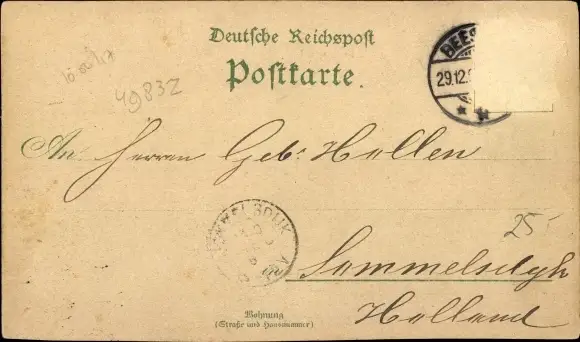 Deutsche Reichspost
Postkarte.
BEES
29.12.
49832
An Herren Geb. Hollen
SOMMELSDIJK
25.-
in Sommelsdijk
Holland
Wohnung
(Straße und Hausnummer)